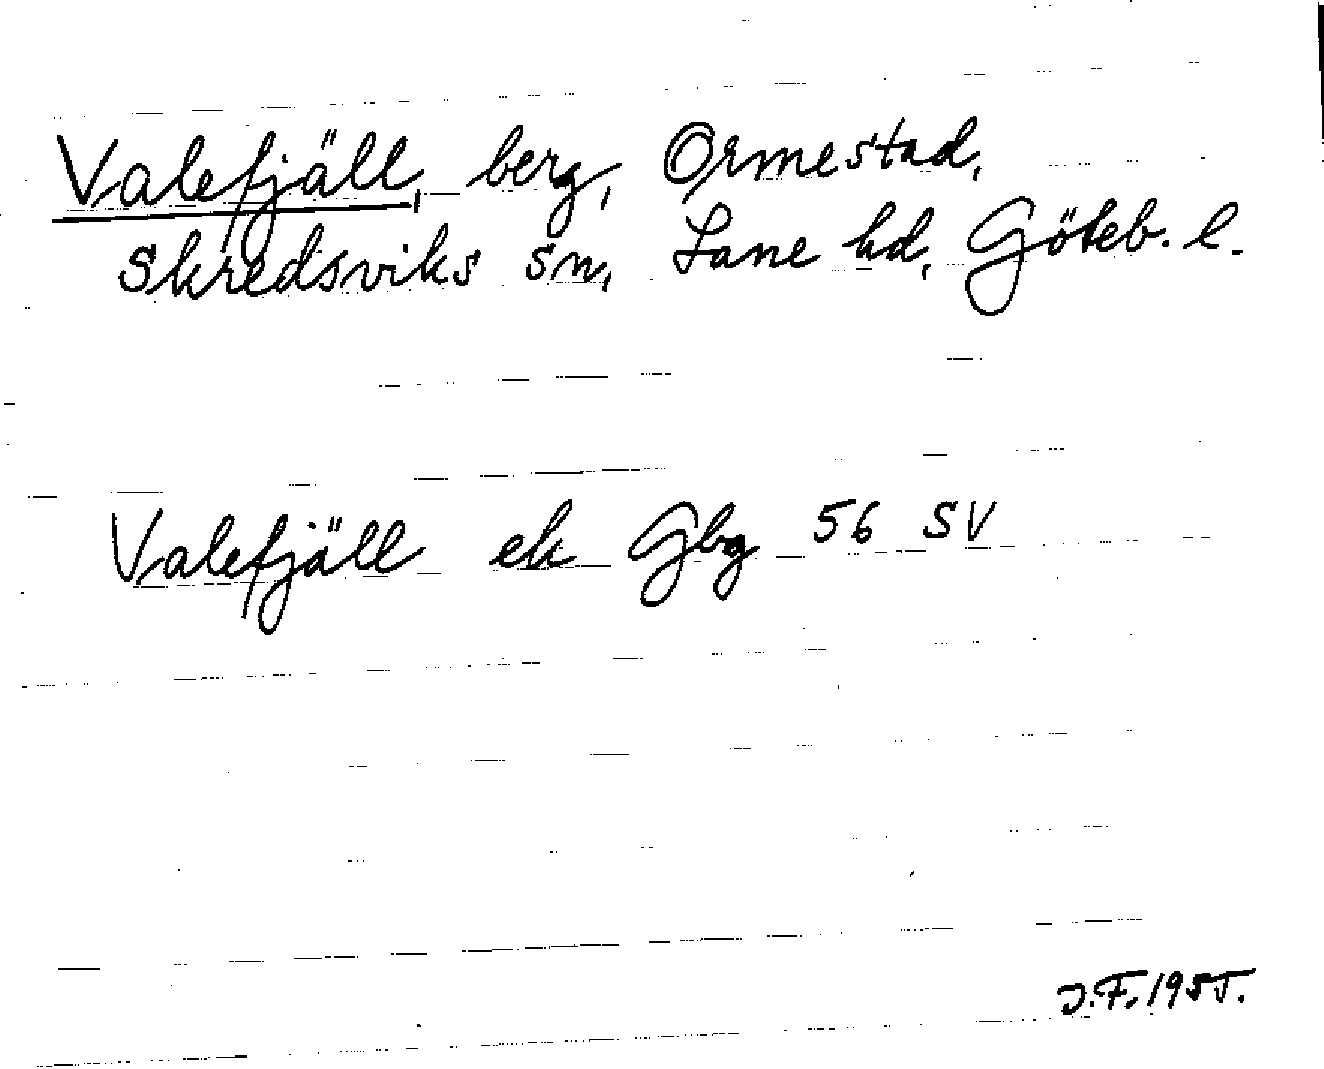 Valefjäll, berg, Ormestad,
Skredsviks sn, Lane hd, Göteb. l.
Valefjäll ek Gbg 56 SV
J.F. 1955.